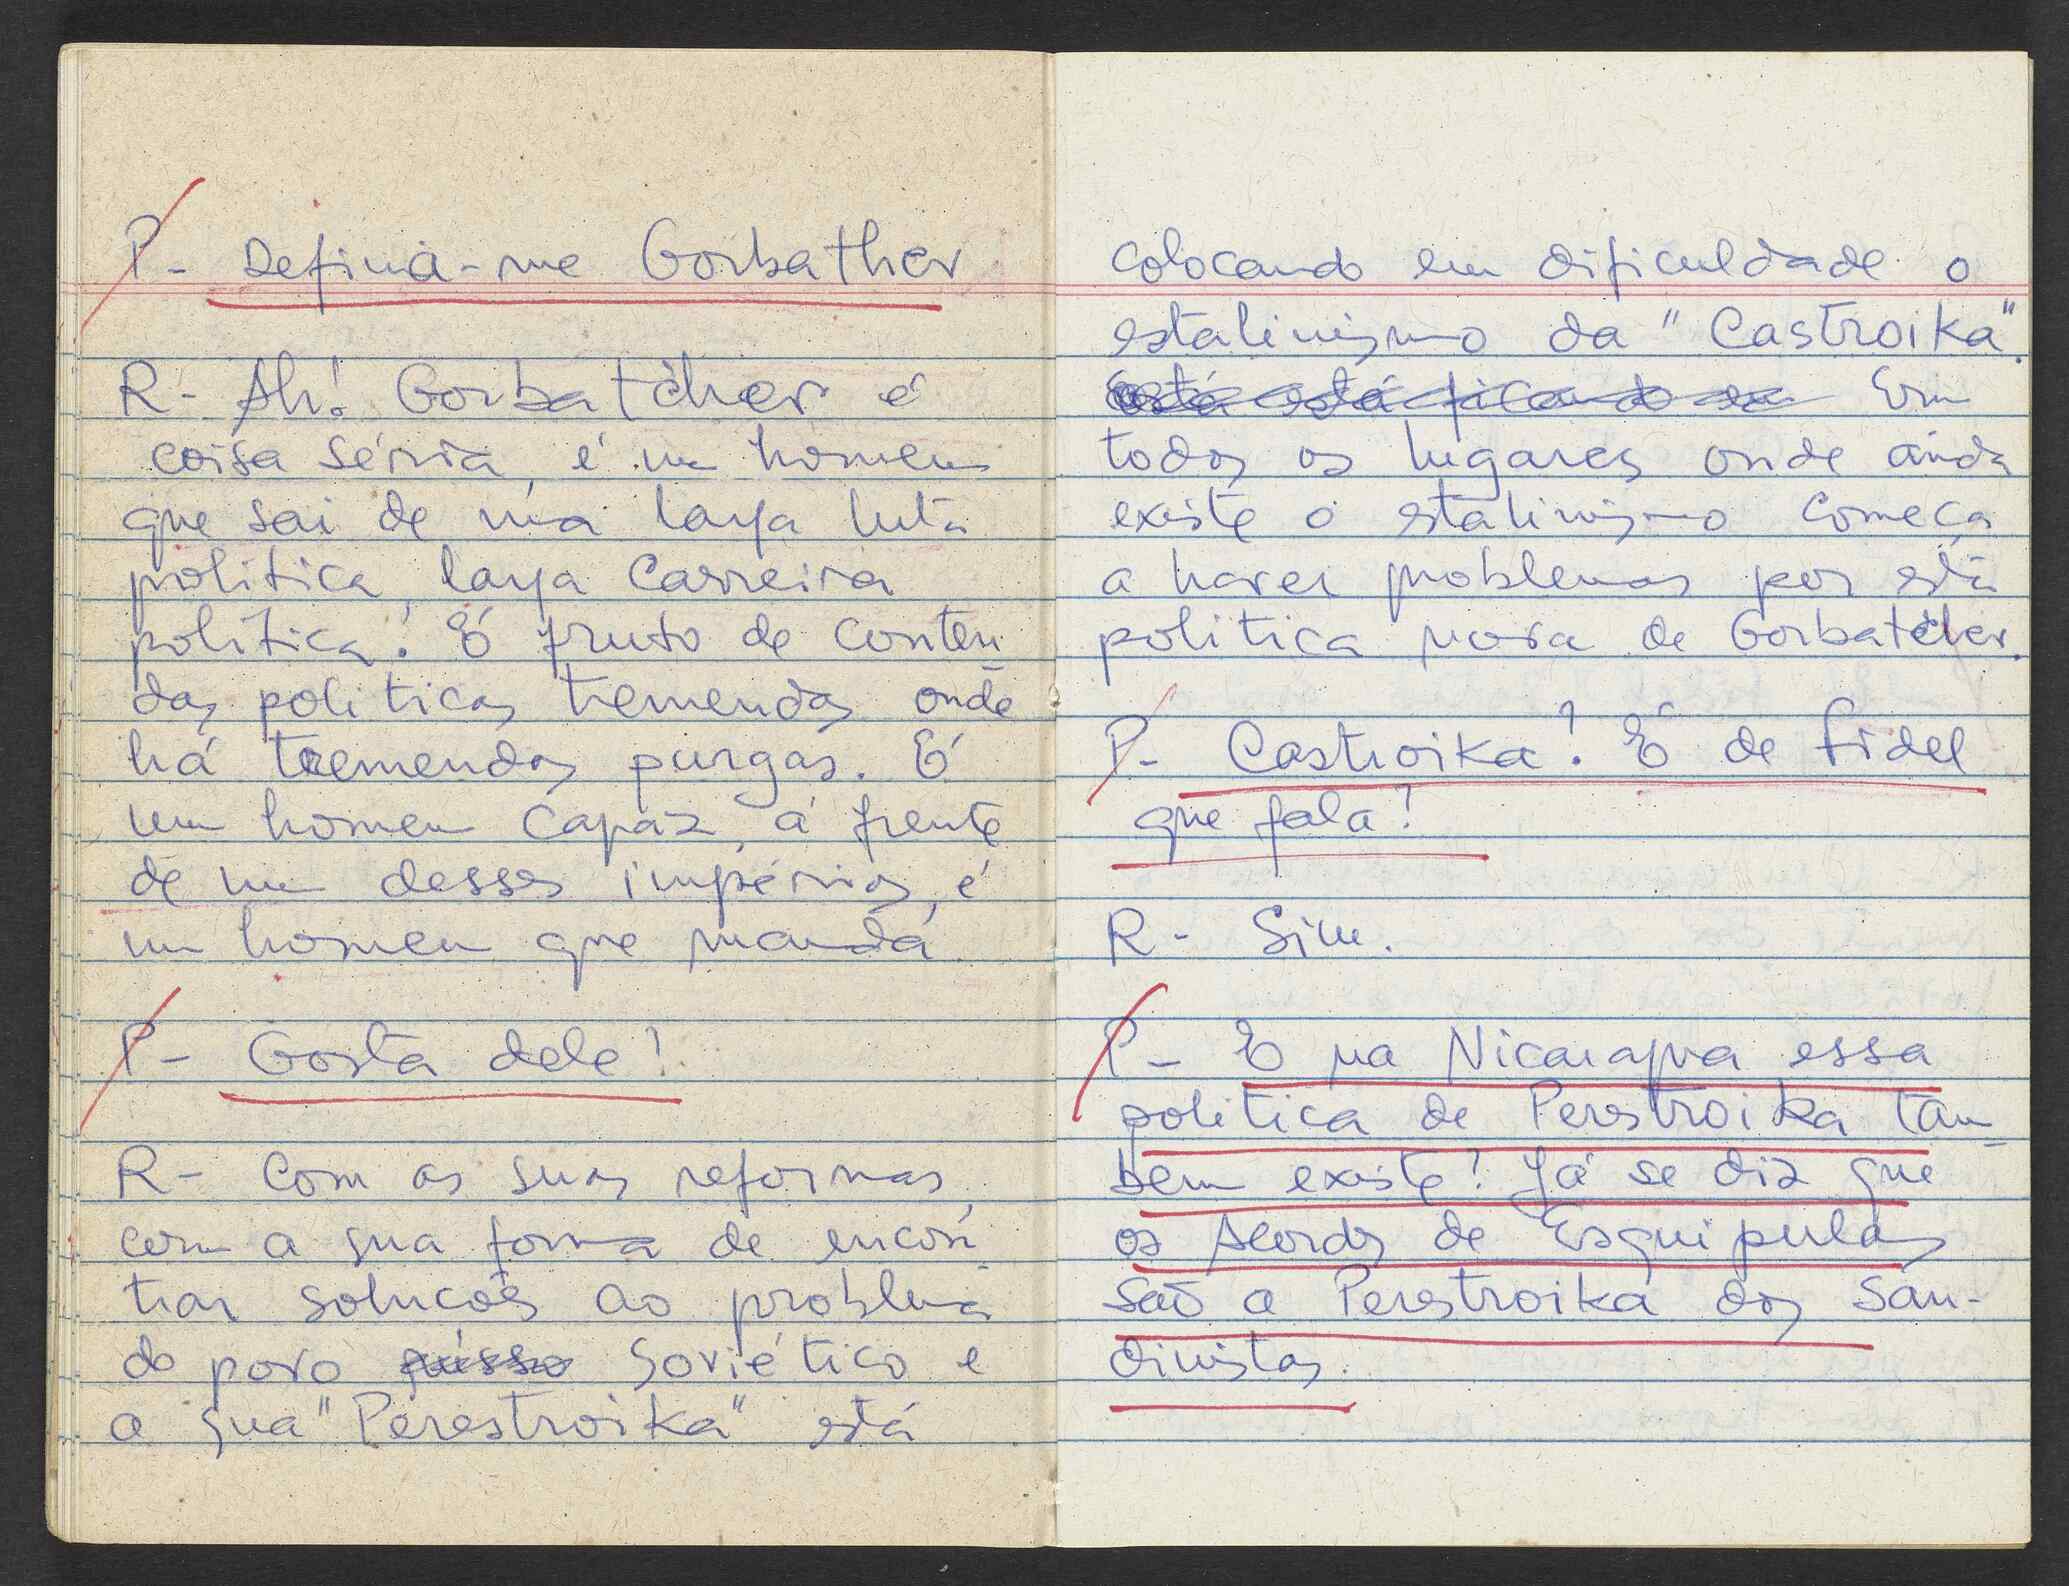 P- Defina-me Gorbatchev
R- Ah! Gorbatchev é
coisa séria, é um homem
que sai de uma larga luta
politica, larga carreira
politica! É fruto de conten-
das politicas tremendas onde
há tremendas purgas. É
um homem capaz, á frente
de um desses impérios, é
um homem que manda
P- Gosta dele?
R- Com as suas reformas,
com a sua forma de encon-
trar soluções ao problema
do povo russo Soviético e
a sua "Perestroika" está
colocando em dificuldade o
estalinismo da "Castroika".
está ficando Em
todos os lugares onde ainda
existe o estalinismo começa
a haver problemas por esta
politica nova de Gorbatchev.
P- Castroika? É de Fidel
que fala?
R- Sim.
P- E na Nicaragua essa
politica de Perestroika tam-
bem existe? Já se diz que
os Acordos de Esquipulas
são a Perestroika dos San-
dinistas.